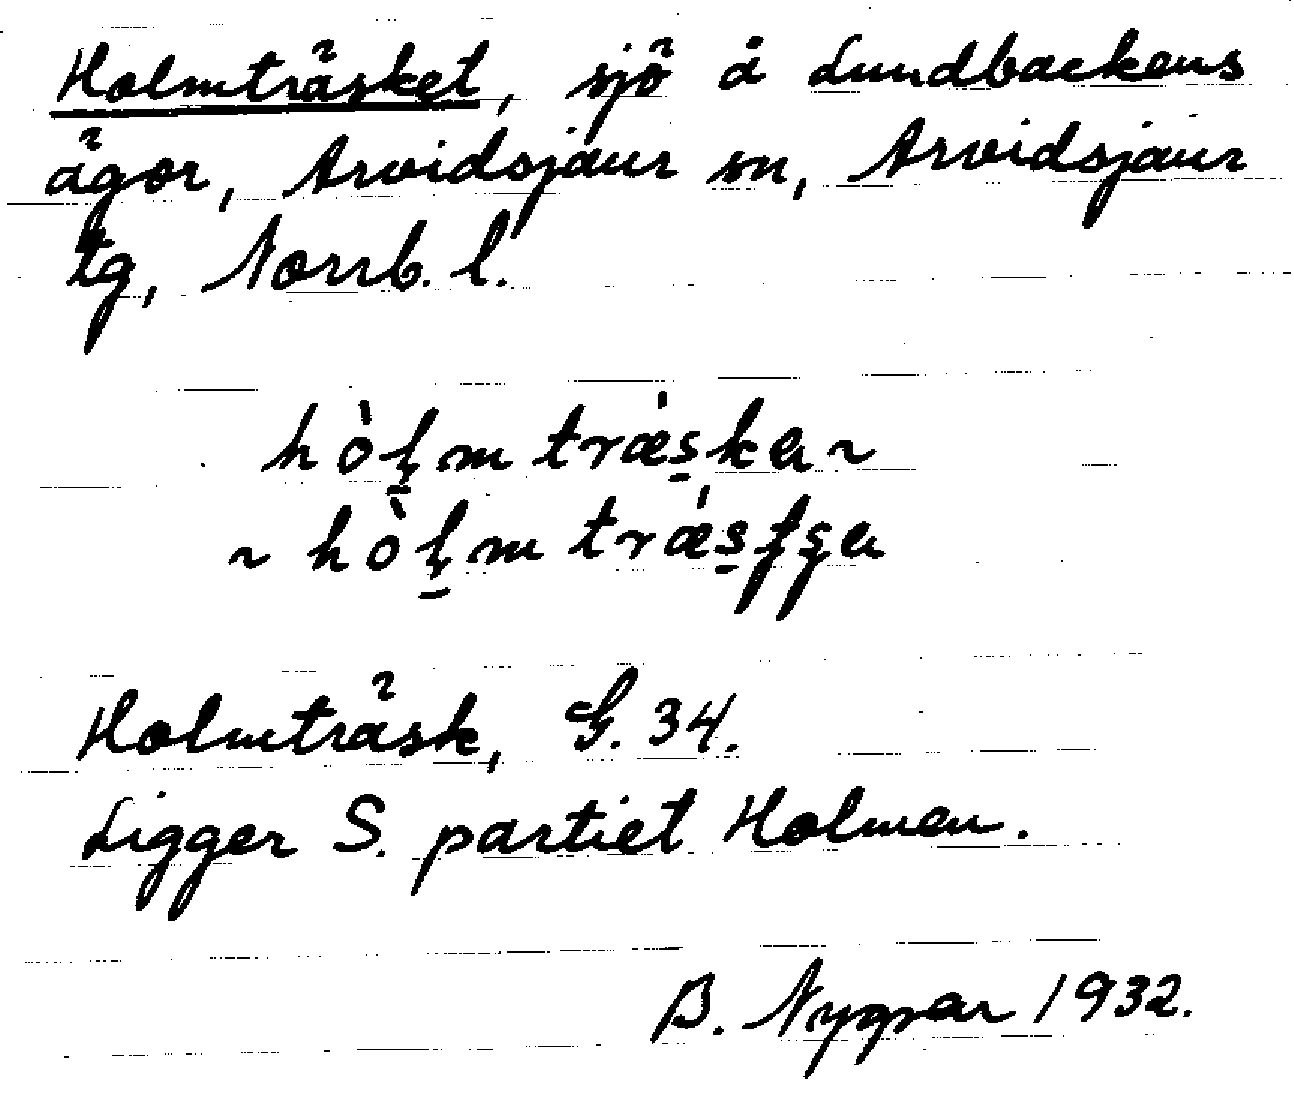 Holmträsket, sjö å Lundbackens
ägor, Arvidsjaur sn, Arvidsjaur
tg, Norrb. l.
hòl̥m træ̀ska ~
~ hòl̥m træ̀sʃʂa
Holmträsk, G. 34.
Ligger S. partiet Holmen.
B. Nygren 1932.